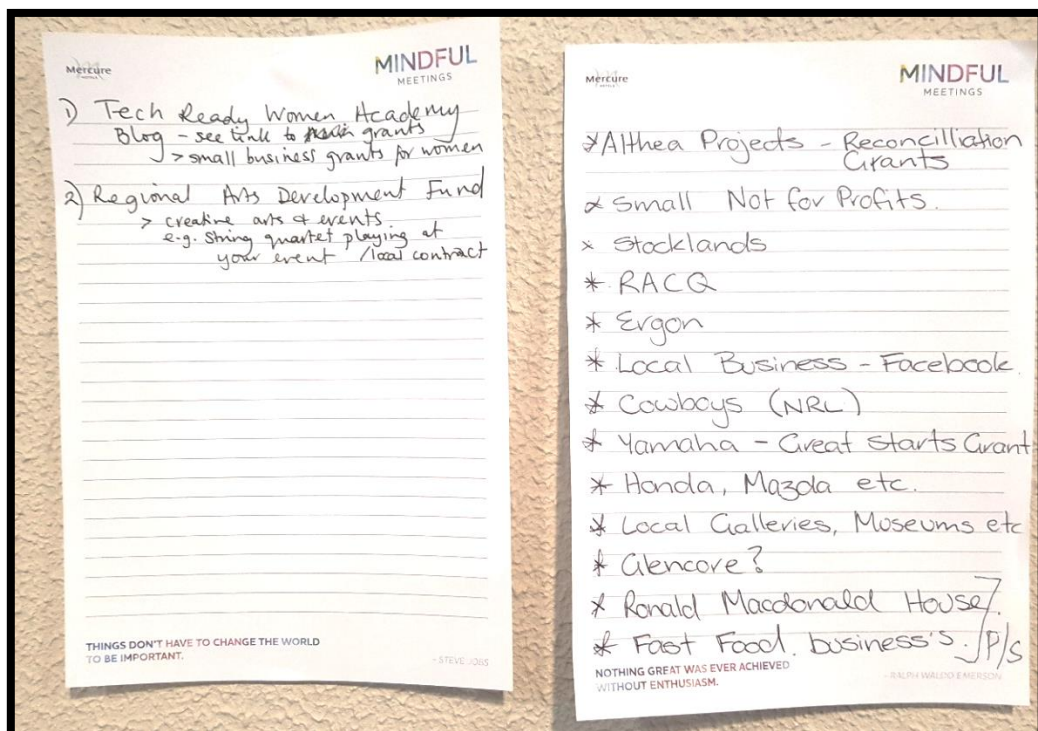 Mercure
HOTELS
MINDFUL
MEETINGS
1) Tech Ready Women Academy
Blog - see link to grants
> small business grants for women
2) Regional Arts Development Fund
> creative arts & events
e.g. String quartet playing at
your event / local contract
THINGS DON'T HAVE TO CHANGE THE WORLD
TO BE IMPORTANT.
- STEVE JOBS
Mercure
HOTELS
MINDFUL
MEETINGS
* Althea Projects - Reconcilliation
Grants
* Small Not for Profits.
* Stocklands
* RACQ
* Ergon
* Local Business - Facebook.
* Cowboys (NRL)
* Yamaha - Great Starts Grant
* Honda, Mazda etc.
* Local Galleries, Museums etc
* Glencore?
* Ronald Macdonald House
* Fast Food business's. P/S
NOTHING GREAT WAS EVER ACHIEVED
WITHOUT ENTHUSIASM.
- RALPH WALDO EMERSON